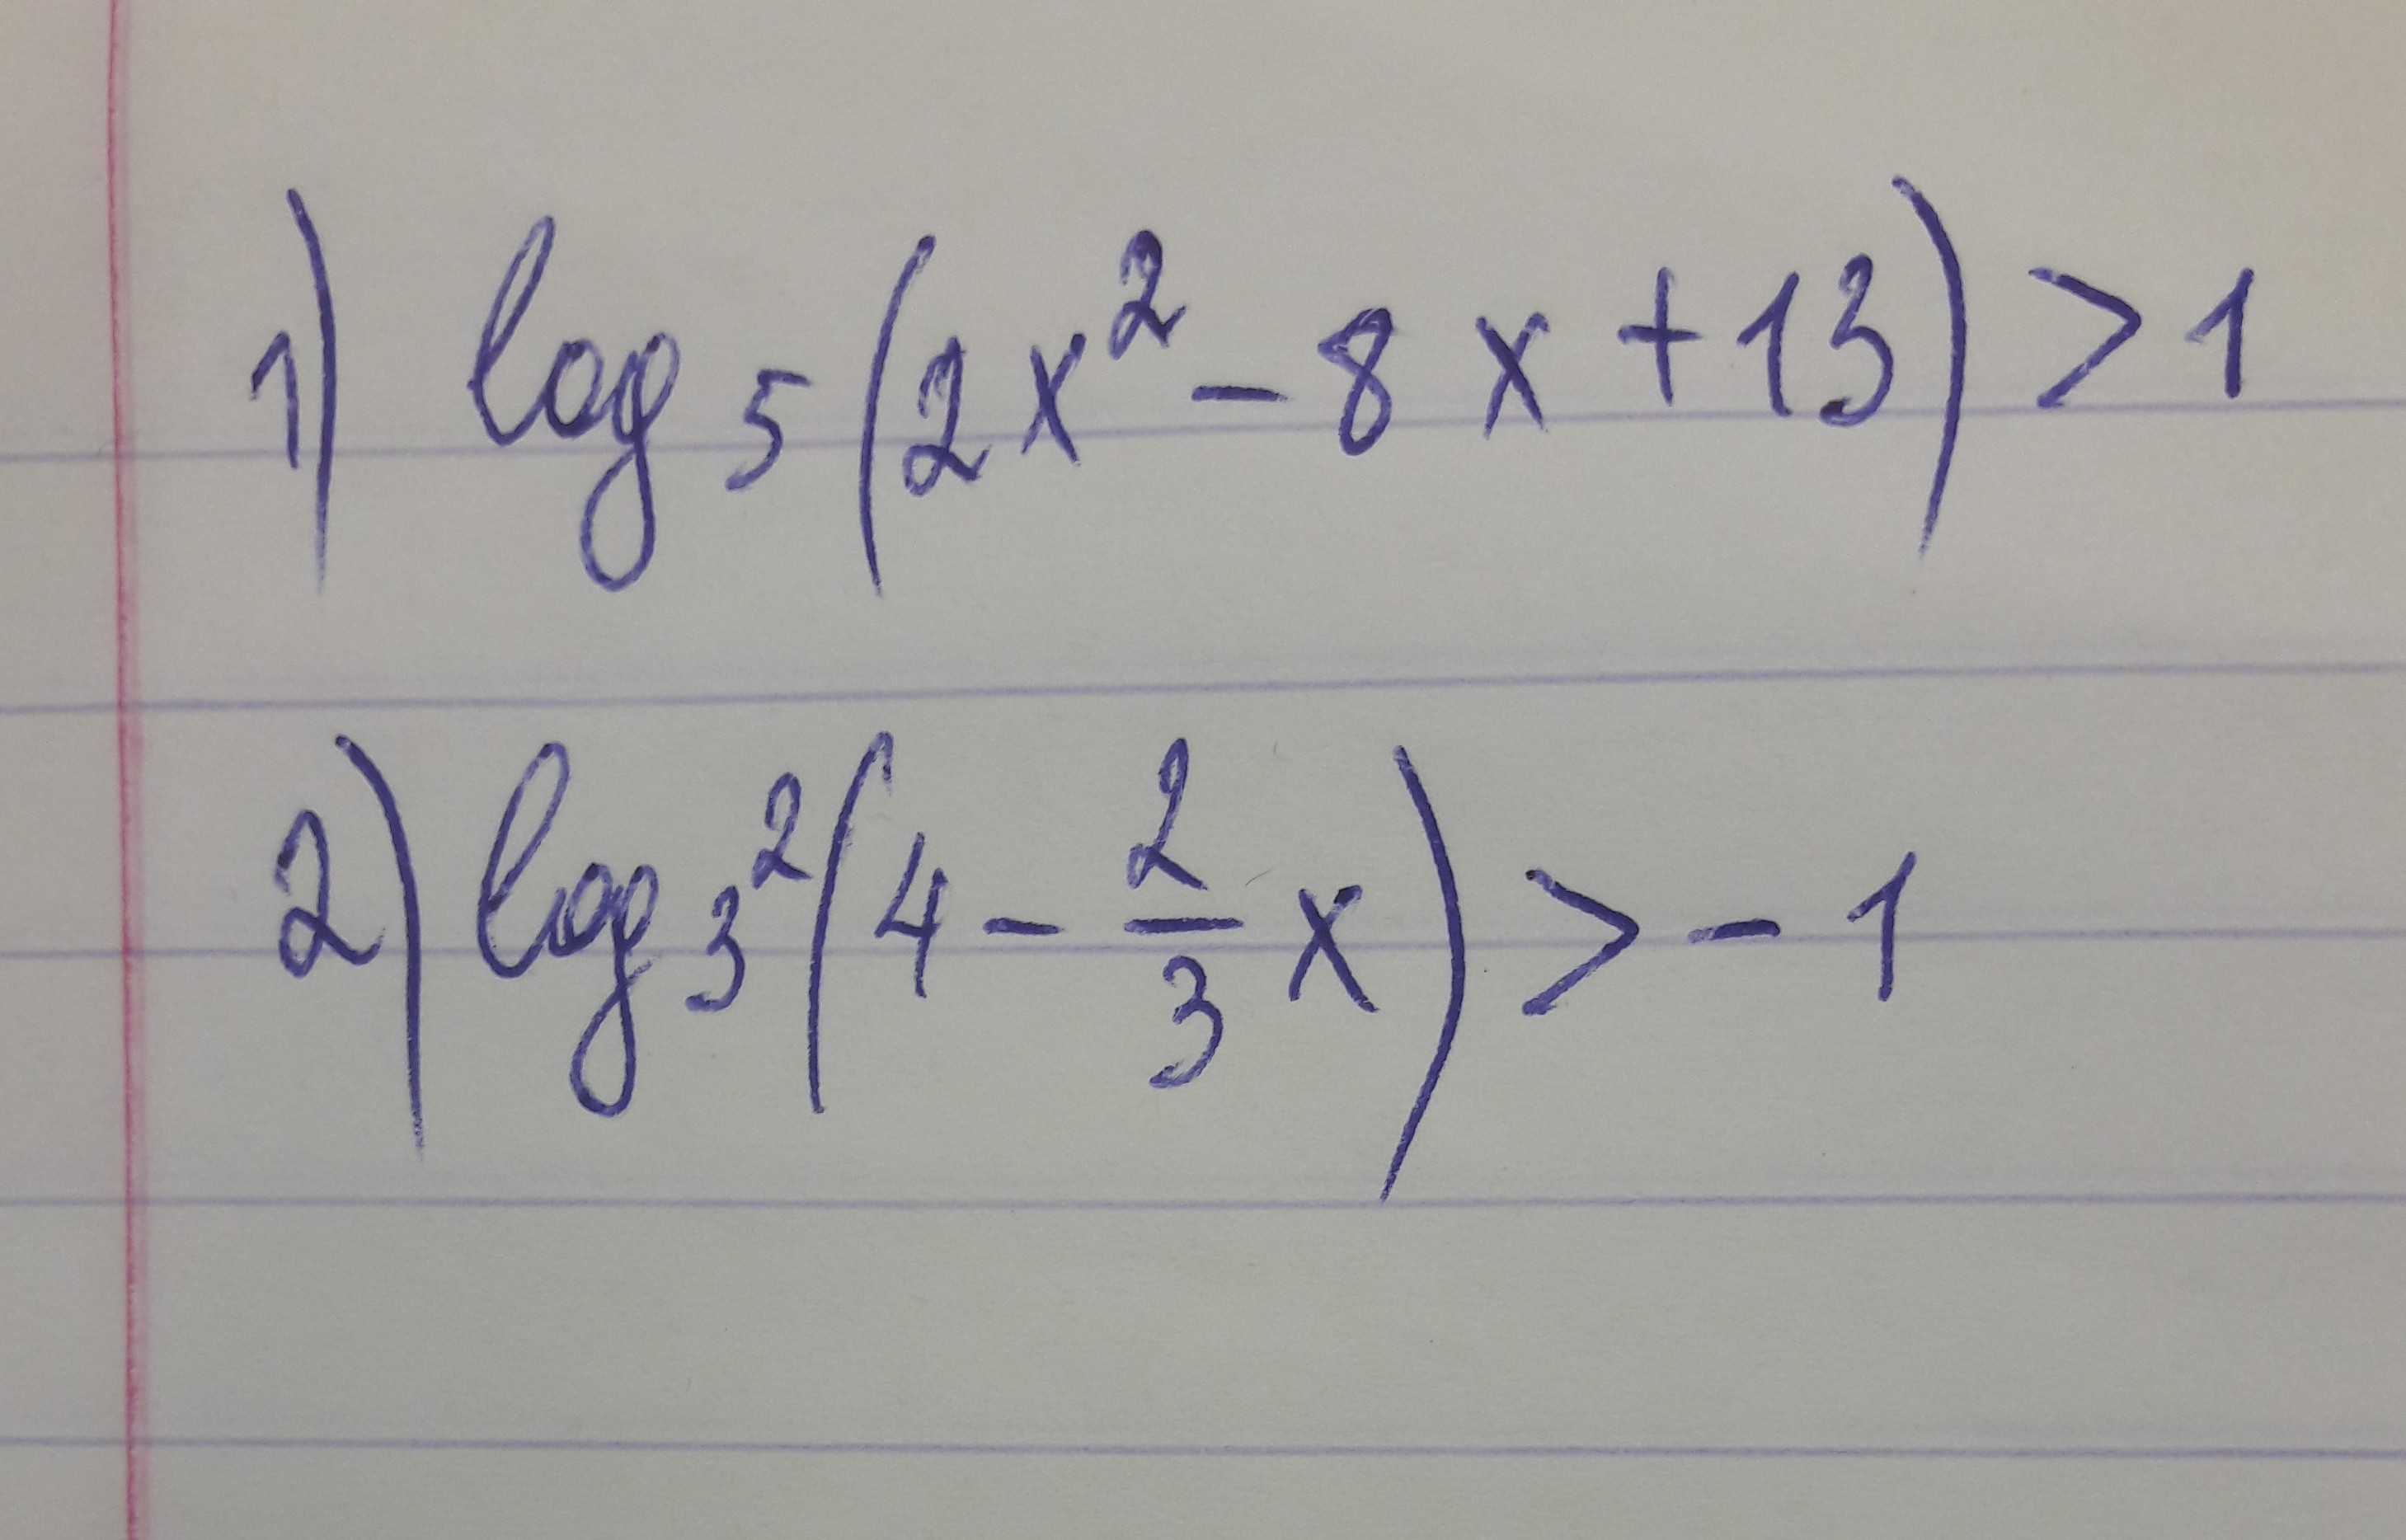 1) log₅(2x² - 8x + 13) > 1
2) log₃²(4 - 2/3 x) > - 1